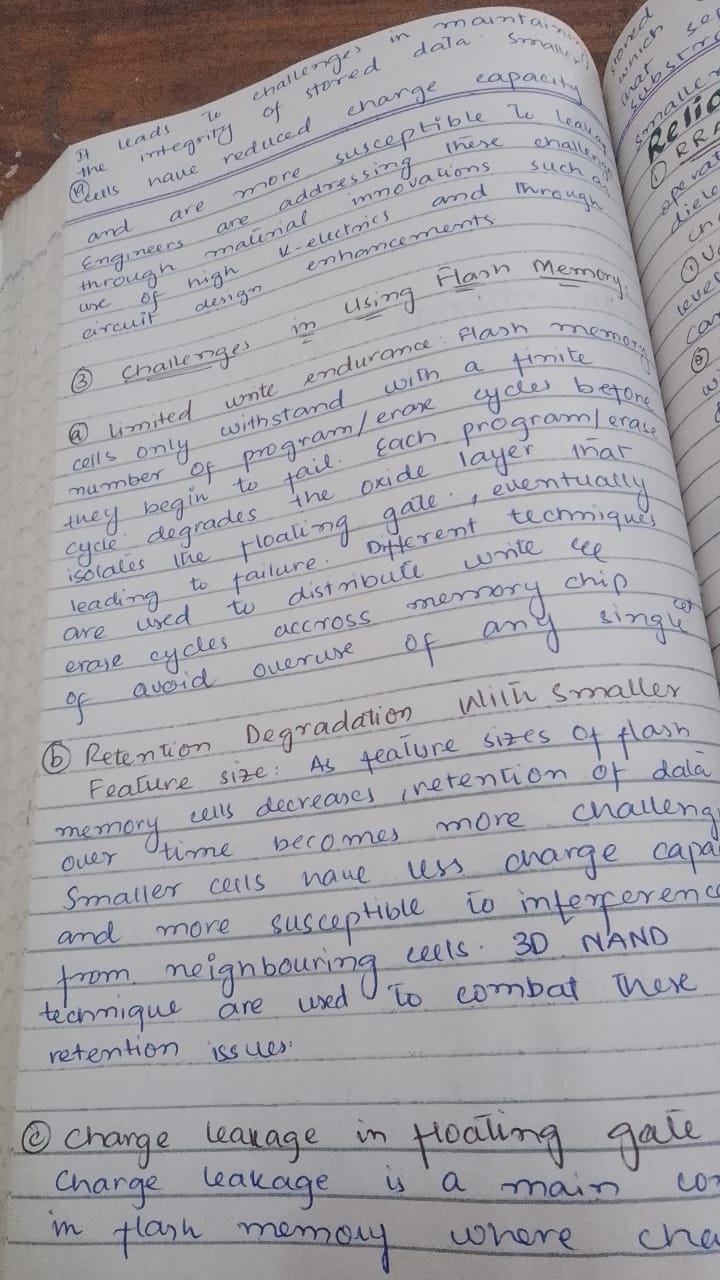 It leads to challenges in maintain
the integrity of stored data. Smaller
cells have reduced charge capacity
and are more susceptible to leaka
Engineers are addressing these challeng
through material innovations such as
use of high k-electrics and through
circuit design enhancements.
③ Challenges in using Flash Memory:
ⓐ limited write endurance: Flash memory
cells only withstand with a finite
number of program/erase cycles before
they begin to fail. Each program/erase
cycle degrades the oxide layer that
isolates the floating gate, eventually
leading to failure. Different techniques
are used to distribute write
erase cycles accross memory chip
of avoid overuse of any single cell
ⓑ Retention Degradation With smaller
Feature size: As feature sizes of flash
memory cells decreases, retention of data
over time becomes more challeng
Smaller cells have less charge capa
and more susceptible to interferenc
from neighbouring cells. 3D NAND
technique are used to combat these
retention issues.
ⓒ Charge leakage in floating gate
Charge leakage is a main con
in flash memory where cha
stored
which
that se
substra
smaller
Relia
① RRA
operat
diele
ch
① V
level
can
②
w